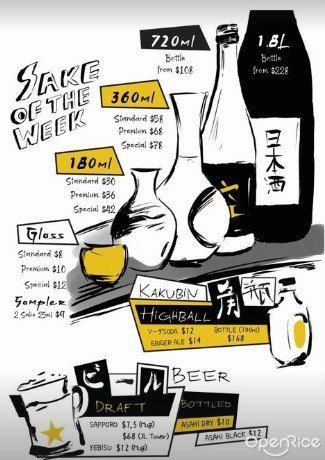 SAKE
OF THE
WEEK
720ml
Bottle
from $108
1.8L
Bottle
from $228
360ml
Standard $58
Premium $68
Special $78
180ml
Standard $30
Premium $36
Special $42
Glass
Standard $8
Premium $10
Special $12
Sampler
2 Sake 25ml $9
日本酒
KAKUBIN
HIGHBALL
角瓶
ソーダSODA $12
GINGER ALE $14
BOTTLE (700ml)
$168
ビール BEER
DRAFT
SAPPORO $7,5 (Mug)
$68 (3L Tower)
YEBISU $12 (Mug)
BOTTLED
ASAHI DRY $10
ASAHI BLACK $12
OpenRice